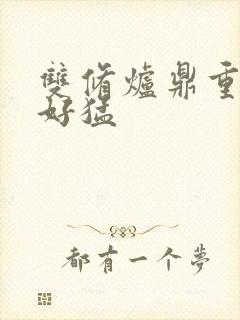 雙脩爐鼎重
好猛
都有一个夢